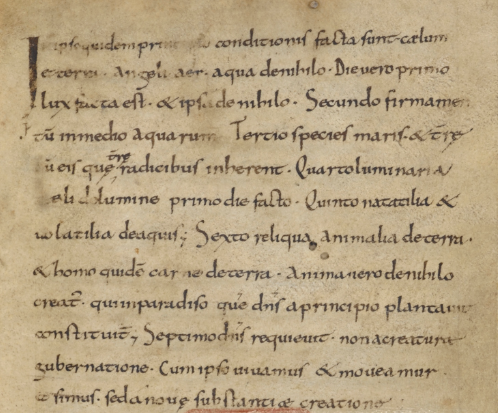 In ipso quidem prin conditionis facta sunt · cælum
et terra · angeli aer · aqua de nihilo · Die vero primo
lux facta est̄ · & ipsa de nihilo · Secundo firmamen
tū in medio aquarum Tertio species maris · & t̄rę
cū eis quę t̄rę radicibus inherent · Quarto luminaria
cęli lumine primo die facto · Quinto natatilia &
volatilia de aquis; Sexto reliqua animalia de terra ·
& homo quidē carne de terra · Anima vero de nihilo
creat̄ · qui in paradiso quē dn̄s a principio plantavit
constituit̄; Septimo dn̄s requievit · non a creaturę
gubernatione · Cum ipso vivamus & moveamur ·
et simus · sed a novę substantiæ creatione